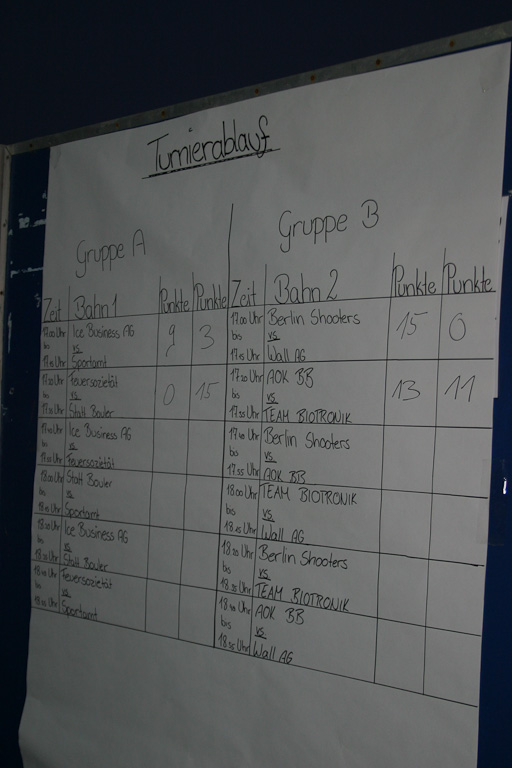 Turnierablauf
Gruppe A
Gruppe B
Zeit Bahn 1 Punkte Punkte Zeit Bahn 2 Punkte Punkte
17.00 Uhr Ice Business AG 9 3 17.00 Uhr Berlin Shooters 15 0
bis vs bis vs
17.15 Uhr Sportamt 17.15 Uhr Wall AG
17.20 Uhr Feuersozietät 0 15 17.20 Uhr AOK BB 13 11
bis vs bis vs
17.35 Uhr Statt Bauler 17.35 Uhr TEAM BIOTRONIK
17.40 Uhr Ice Business AG 17.40 Uhr Berlin Shooters
bis vs bis vs
17.55 Uhr Feuersozietät 17.55 Uhr AOK BB
18.00 Uhr Statt Bauler 18.00 Uhr TEAM BIOTRONIK
bis vs bis vs
18.15 Uhr Sportamt 18.15 Uhr Wall AG
18.20 Uhr Ice Business AG 18.20 Uhr Berlin Shooters
bis vs bis vs
18.35 Uhr Statt Bauler 18.35 Uhr TEAM BIOTRONIK
18.40 Uhr Feuersozietät 18.40 Uhr AOK BB
bis vs bis vs
Uhr Sportamt 18.55 Uhr Wall AG